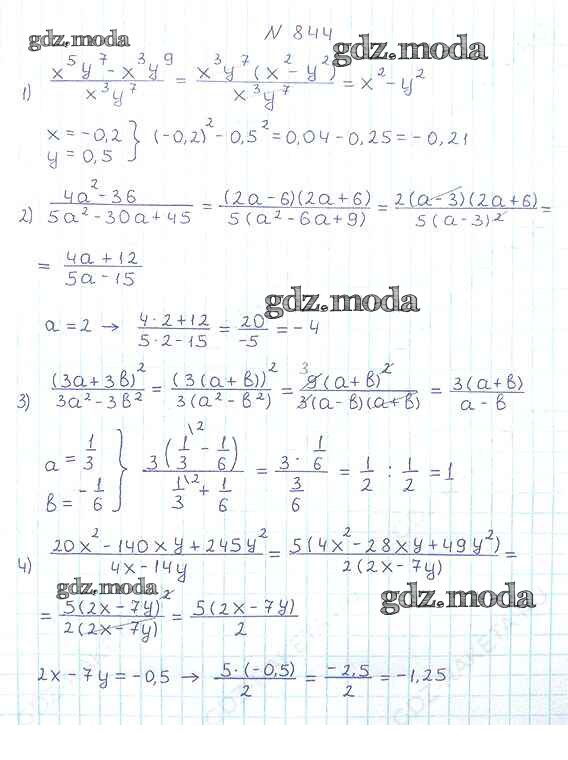 N 844
gdz.moda
gdz.moda
1) (x⁵y⁷ - x³y⁹)/(x³y⁷) = (x³y⁷(x² - y²))/(x³y⁷) = x² - y²
x = -0,2
y = 0,5 } (-0,2)² - 0,5² = 0,04 - 0,25 = -0,21
2) (4a² - 36)/(5a² - 30a + 45) = ((2a - 6)(2a + 6))/(5(a² - 6a + 9)) = (2(a - 3)(2a + 6))/(5(a - 3)²) =
= (4a + 12)/(5a - 15)
gdz.moda
a = 2 → (4·2 + 12)/(5·2 - 15) = 20/-5 = -4
3) (3a + 3в)²/(3a² - 3в²) = (3(a + в))²/(3(a² - в²)) = 3 9(a + в)²/(3(a - в)(a + в)) = 3(a + в)/(a - в)
a = 1/3
в = -1/6 } 3(1/3\2 - 1/6)/(1/3\2 + 1/6) = (3·1/6)/(3/6) = 1/2 : 1/2 = 1
4) (20x² - 140xy + 245y²)/(4x - 14y) = 5(4x² - 28xy + 49y²)/(2(2x - 7y)) =
gdz.moda
gdz.moda
= 5(2x - 7y)²/(2(2x - 7y)) = 5(2x - 7y)/2
2x - 7y = -0,5 → 5·(-0,5)/2 = -2,5/2 = -1,25